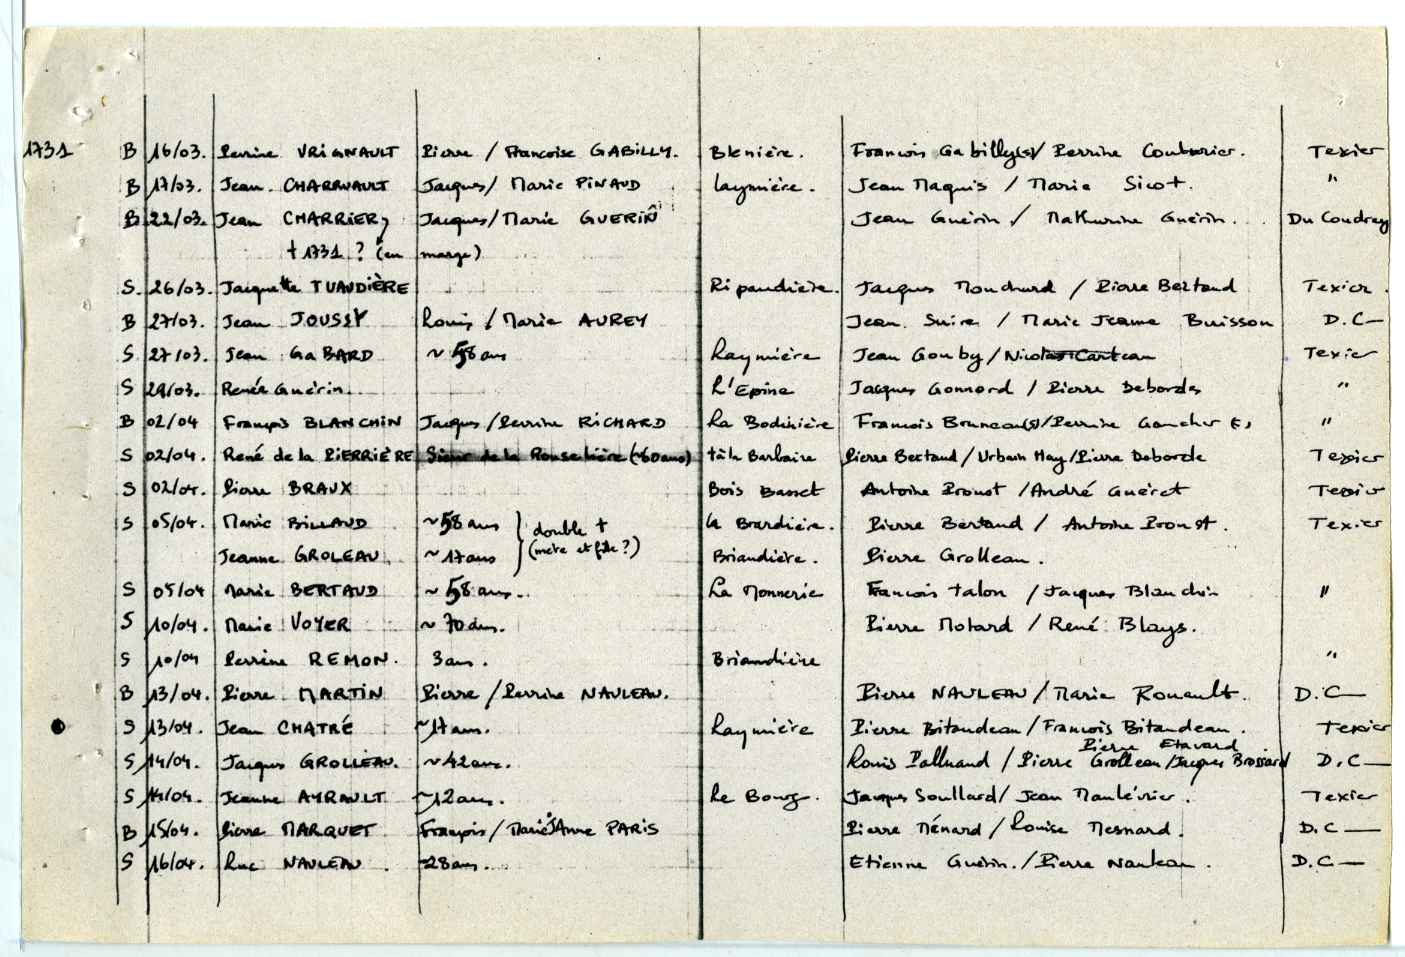 1731 B 16/03. Perrine VRIGNAULT Pierre / Françoise GABILLY. Blenière. François Gabilly(s)/ Perrine Couturier. Texier
B 17/03. Jean CHARRUAULT Jacques/ Marie PINAUD Laymière. Jean Maquis / Marie Sicot. "
B 22/03. Jean CHARRIER, Jacques/Marie GUERIN Jean Guérin / Mathurine Guérin. Du Coudray
† 1731 ? (en marge)
S. 26/03. Jacquette TUAUDIÈRE Ripaudière. Jacques Mouchard / Pierre Bertaud Texier.
B 27/03. Jean JOUSSY Louis / Marie AUREY Jean Suire / Marie Jeanne Buisson D.C—
S 27/03. Jean GABARD ~ 58 ans Raymière Jean Gouby / Nicolas Carteau Texier
S 29/03. Renée Guérin. L'Epine Jacques Gonnord / Pierre Debordes "
B 02/04 François BLANCHIN Jacques / Perrine RICHARD La Bodinière François Bruneau(s)/Perrine Gaucher (s) "
S 02/04. René de la PIERRIÈRE Sieur de la Rouselière (~60ans) † à la Barbaire Pierre Bertaud / Urbain Hay / Pierre Deborde Texier
S 02/04. Pierre BRAUX Bois Basset Antoine Proust / André Guéret Texier
S 05/04. Marie BILLAUD ~58 ans double † la Brardière. Pierre Bertaud / Antoine Proust. Texier
Jeanne GROLEAU. ~ 17ans (mère et fille ?) Briaudière. Pierre Grolleau.
S 05/04 Marie BERTAUD ~ 58 ans. La Monnerie François talon / Jacques Blanchin "
S 10/04. Marie VOYER ~ 70 ans. Pierre Motard / René Blays.
S 10/04 Perrine REMON. 3ans. Briaudière "
B 13/04. Pierre MARTIN Pierre / Perrine NAULEAU. Pierre NAULEAU / Marie Rouault. D.C—
S 13/04. Jean CHATRÉ ~17 ans. Raymière Pierre Bitaudeau / François Bitaudeau. Texier
Pierre Etavard
S 14/04. Jacques GROLLEAU. ~ 42ans. Louis Palluaud / Pierre Grolleau / Jacques Brossard D.C—
S 14/04. Jeanne AYRAULT ~12ans. Le Bourg. Jacques Soullard / Jean Maulévrier. Texier
B 15/04. Pierre MARQUET François / Marie Anne PARIS Pierre Ménard / Louise Mesnard. D.C—
S 16/04. Luc NAULEAU ~28ans. Etienne Guérin. / Pierre Nauleau. D.C—